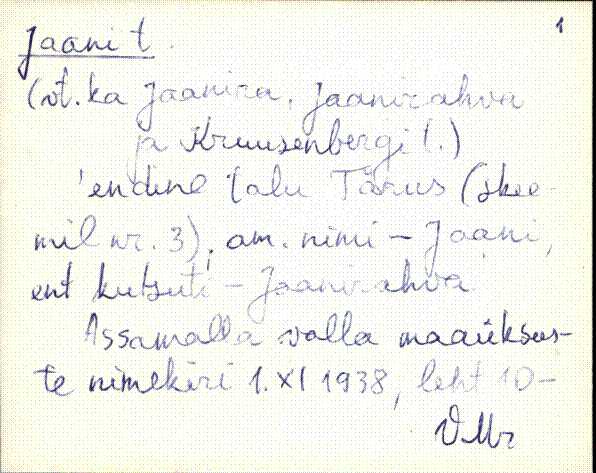 1
Jaani t.
(vt. ka Jaanira, Jaanirahva
ja Kruusenbergi t.)
'endine talu Tõrus (skee-
mil nr. 3), am. nimi - Jaani,
ent kutsuti - Jaanirahva.
Assamalla valla maaüksus-
te nimekiri 1. XI 1938, leht 10-